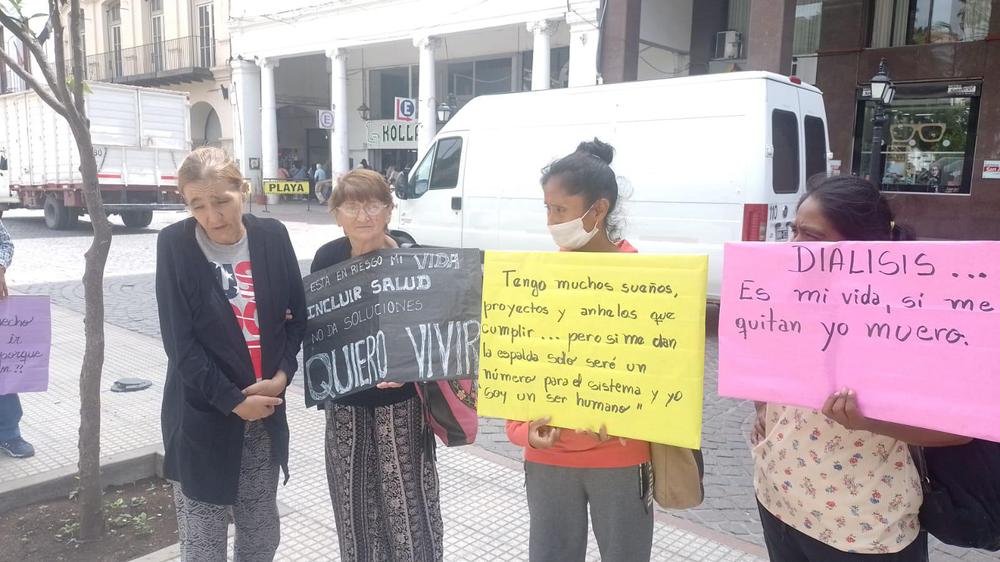 PLAYA
E
E
KOLLA
110
echo
ir
porque
n??
ESTÁ EN RIESGO MI VIDA
INCLUIR SALUD
NO DA SOLUCIONES
QUIERO VIVIR
Tengo muchos sueños,
proyectos y anhelos que
cumplir... pero si me dan
la espalda solo seré un
número para el sistema y yo
"Soy un ser humano"
DIALISIS...
Es mi vida, si me
quitan yo muero.